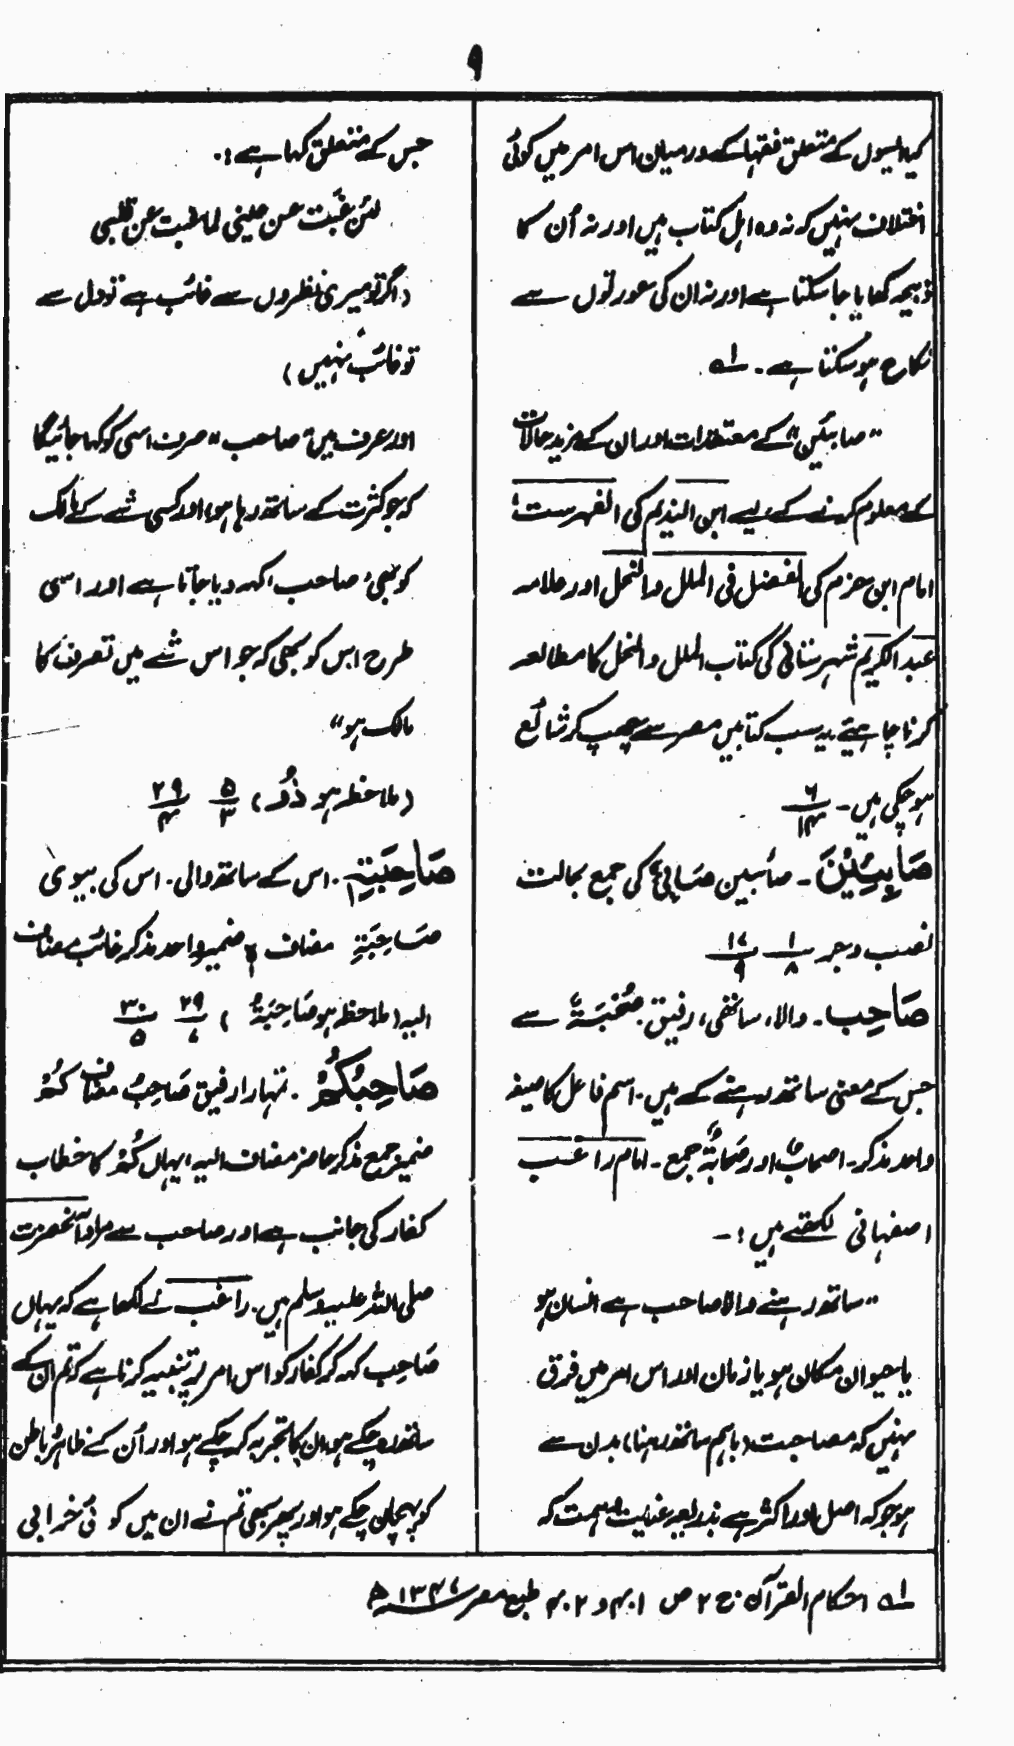 ۹
کیا، ایسوں کے متعلق فقہا کے درمیان اس امر میں کوئی
اختلاف نہیں کہ نہ وہ اہل کتاب ہیں اور نہ اُن کا
ذبیحہ کھایا جا سکتا ہے اور نہ ان کی عورتوں سے
نکاح ہو سکتا ہے۔ لہ
”صابئین“ کے معتقدات اور ان کے مزید حالات
کے معلوم کرنے کے لیے ابن الندیم کی الفہرست،
امام ابن حزم کی الفصل فی الملل والنحل اور علامہ
عبد الکریم شہرستانی کی کتاب الملل والنحل کا مطالعہ
کرنا چاہئے یہ سب کتابیں مصر سے چھپ کر شائع
ہو چکی ہیں۔ ۶/۱۴
صَابِئِیْنَ۔ صائبین صَابِیٌٔ کی جمع بحالت
نصب وجر ۱/۸ ۱۷/۹
صَاحِب۔ والا، ساتھی، رفیق، صُحْبَۃٌ سے
جس کے معنی ساتھ رہنے کے ہیں۔ اسم فاعل کا صیغہ
واحد مذکر۔ اصحاب اور صَحَابَۃٌ جمع۔ امام راغب
اصفہانی لکھتے ہیں:۔
”ساتھ رہنے والا صاحب ہے انسان ہو
یا حیوان مکان ہو یا زمان اور اس امر میں فرق
نہیں کہ مصاحبت (باہم ساتھ رہنا) بدن سے
ہو جو کہ اصل اور اکثر ہے بذریعہ عنایت و ہمت کہ
جس کے متعلق کہا ہے:۔
لئن غبت عن عینی لما غبت عن قلبی
(اگر تو میری نظروں سے غائب ہے تو دل سے
تو غائب نہیں)
اور عرف میں ”صاحب“ صرف اسی کو کہا جائیگا
کہ جو کثرت کے ساتھ رہا ہو، اور کسی شے کے مالک
کو بھی ”صاحب“ کہہ دیا جاتا ہے اور اسی
طرح اس کو بھی کہ جو اس شے میں تصرف کا
مالک ہو“
(ملاحظہ ہو ذُو) ۵/۳ ۲۹/۴
صَاحِبَتِہٖ۔ اس کے ساتھ والی۔ اس کی بیوی
صَاحِبَۃِ مضاف ہٖ ضمیر واحد مذکر غائب مضاف
الیہ (ملاحظہ ہو صَاحِبَۃٌ) ۲۹/۷ ۳۰/۵
صَاحِبُکُمْ۔ تمہارا رفیق صَاحِبُ مضاف کُمْ
ضمیر جمع مذکر حاضر مضاف الیہ۔ یہاں کُمْ کا خطاب
کفار کی جانب ہے اور صاحب سے مراد آنحضرت
صلی اللہ علیہ وسلم ہیں۔ راغب نے لکھا ہے کہ یہاں
صَاحِب کہہ کر کفار کو اس امر پر تنبیہ کرنا ہے کہ تم ان کے
ساتھ رہ چکے ہو، ان کا تجربہ کر چکے ہو اور اُن کے ظاہر و باطن
کو پہچان چکے ہو اور پھر بھی تم نے ان میں کوئی خرابی
لہ احکام القرآن ج ۲ ص ۴۰۱ و ۴۰۲ طبع مصر ۱۳۴۷ھ